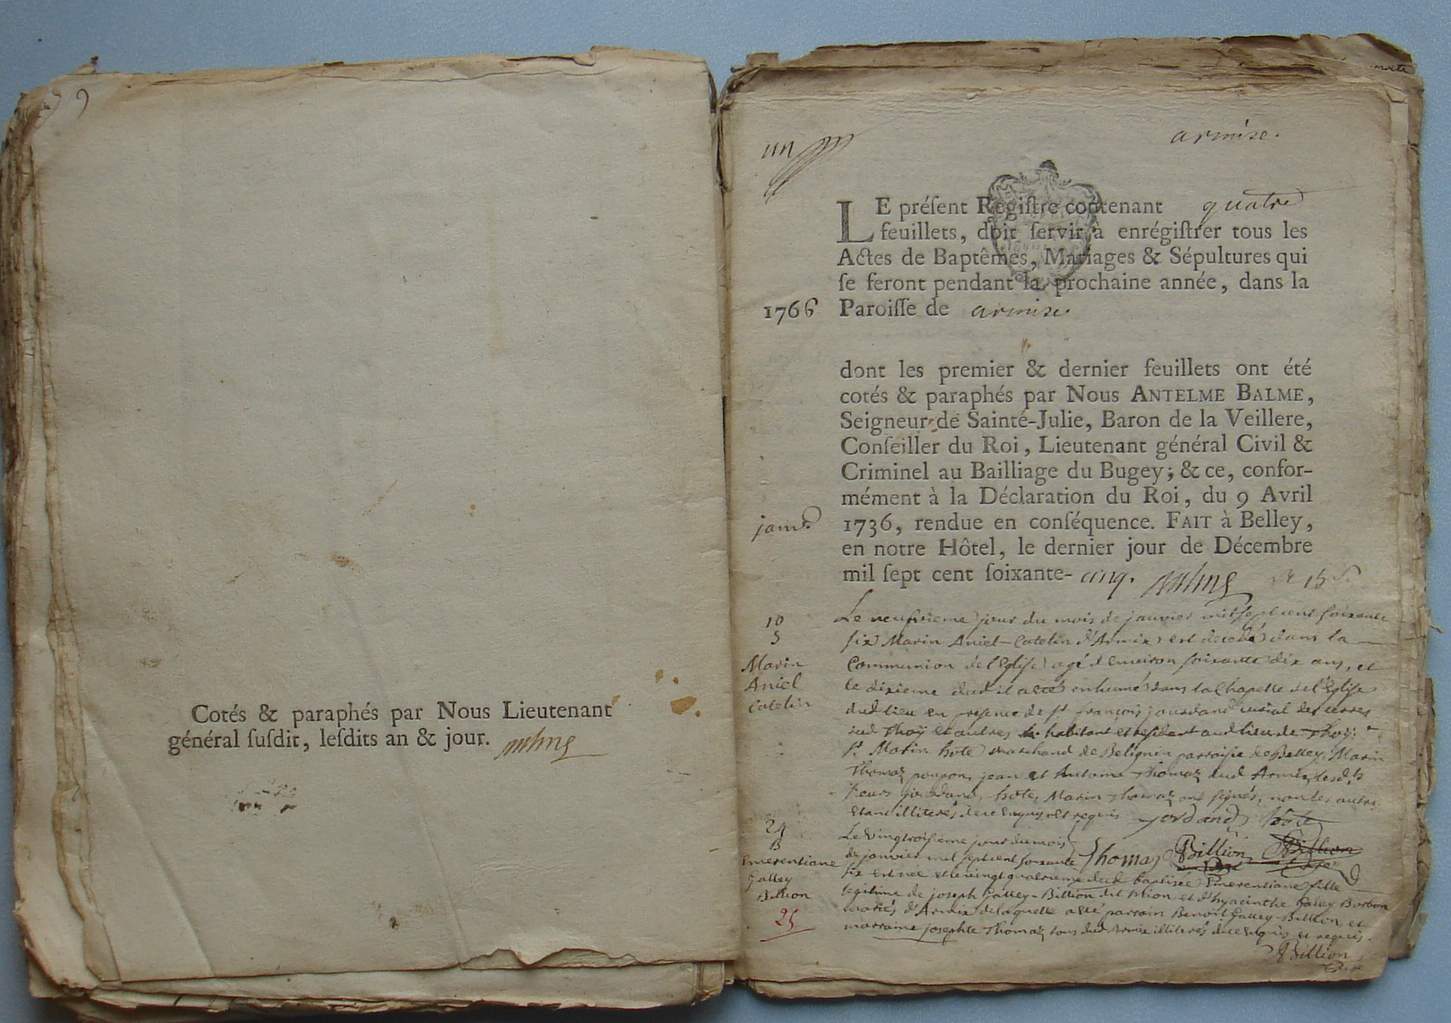 9
Cotés & paraphés par Nous Lieutenant
général susdit, lesdits an & jour.
un
armise.
LE présent Registre contenant quatre
feuillets, doit servir à enrégistrer tous les
Actes de Baptêmes, Mariages & Sépultures qui
se feront pendant la prochaine année, dans la
1766 Paroisse de armise.
dont les premier & dernier feuillets ont été
cotés & paraphés par Nous ANTELME BALME,
Seigneur de Sainte-Julie, Baron de la Veillere,
Conseiller du Roi, Lieutenant général Civil &
Criminel au Bailliage du Bugey; & ce, confor-
mément à la Déclaration du Roi, du 9 Avril
janv.
1736, rendue en conséquence. FAIT à Belley,
en notre Hôtel, le dernier jour de Décembre
mil sept cent soixante- cinq.
10
S
Marin
Aniel
Catelin
Le neufvieme jour du mois de janvier mil sept cent soixante
six Marin Aniel-Catelin d'Armix est decedé dans la
Communion de l'Eglise agé d'environ soixante dix ans, et
le dixieme dud il a été enhumé dans la Chapelle de l'Eglise
dud lieu en presence de sr françois jourdane curial des terres
de Thoy et autres habitant et residant aud lieu de Thoy
sr Marin hote marchand de Belignin parroisse de Belley, Marin
Thomaz jean et Antoine Thomaz dud Armix, lesds
sieurs jourdane, hote, Marin Thomaz ont signés, non les autres
etant illiterés de ce enquis et requis jordane hote
Thomaz Billion
24
B
Emerentiane
Galley
Billion
25
Le vingtroisieme jour du mois
de janvier mil sept cent soixante
six est née et le vingt quatrieme dud baptisée Emerentiane fille
legitime de joseph Galley-Billion dit et d'hyacinthe Galley Borbon
mariés d'Armix de laquelle a été parrain Benoit Galley-Billion et
marraine josephte Thomaz tous dud Armix illiterés de ce enquis et requis.
Billion